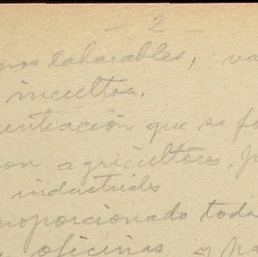 - 2 -
laborables, va
incultos.
entración que se fo
on agricultores, p
industriales
roporcionado toda
oficinas y pa